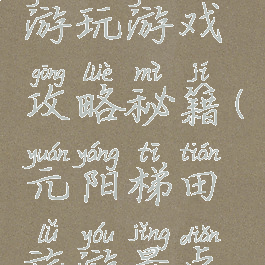 游玩游戏
gōng lüè mì jí
攻略秘籍(
yuán yáng tī tián
元阳梯田
lǚ yóu jǐng diǎn
旅游景点